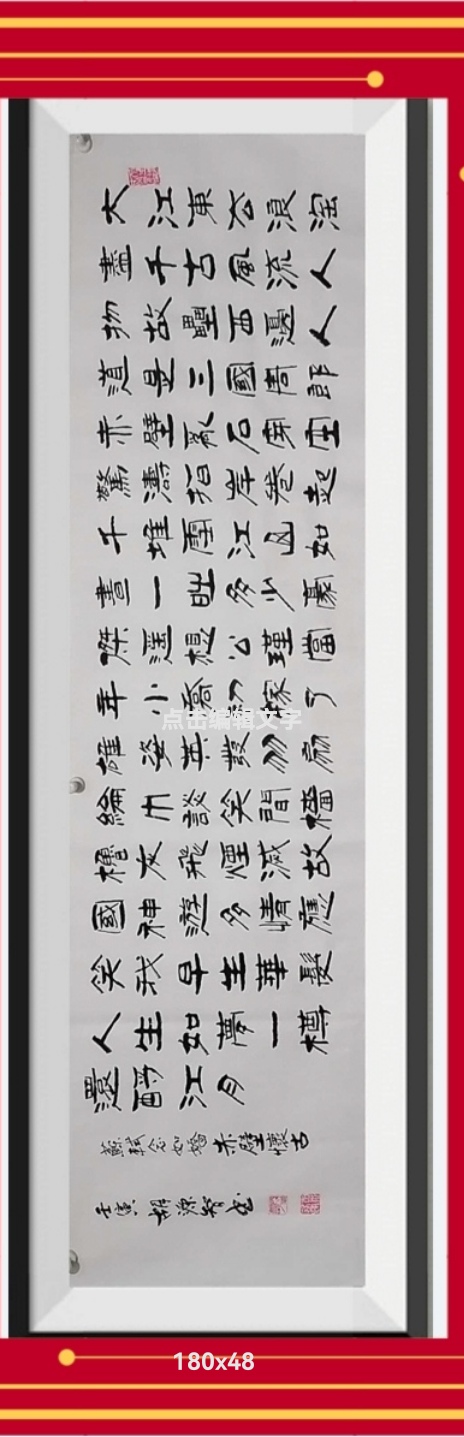 大江東去浪淘
盡千古風流人
物故壘西邊人
道是三國周郎
赤壁亂石穿空
驚濤拍岸卷起
千堆雪江山如
畫一旹多少豪
傑遥想公瑾當
年小喬初嫁了
雄姿英發羽扇
綸巾談笑間檣
櫓灰飛煙滅故
國神遊多情應
笑我早生華髮
人生如夢一樽
還酹江月
蘇軾念奴嬌赤壁懷古
壬寅
点击编辑文字
180x48